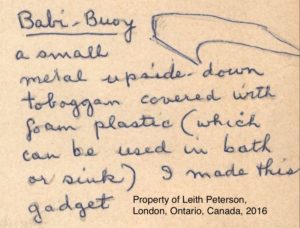 Babi-Buoy
a small
metal upside-down
toboggan covered with
foam plastic (which
can be used in bath
or sink) I made this
gadget
Property of Leith Peterson,
London, Ontario, Canada, 2016